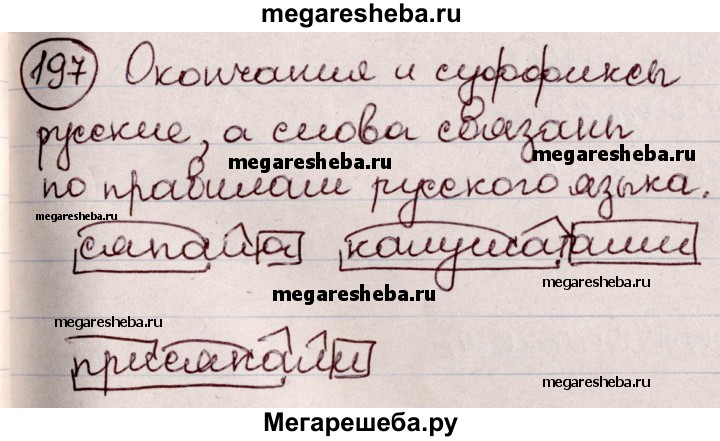 megaresheba.ru
197 Окончания и суффиксы
русские, а слова связаны
megaresheba.ru
megaresheba.ru
по правилам русского языка.
megaresheba.ru
сяпала калушатами
megaresheba.ru
megaresheba.ru
присяпали
megaresheba.ru
Мегарешеба.ру